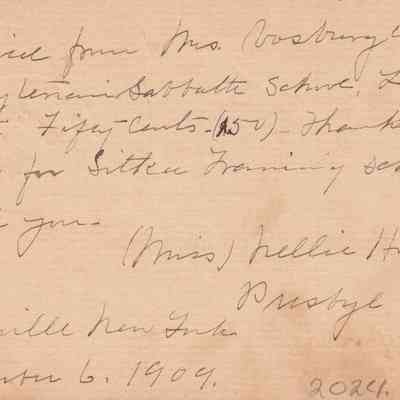 ived from Mrs. Vosburgh
yterian Sabbath School, L
Fifty Cents-(.50)- Thank
for Sitka Training sc
you-
(Miss) Nellie H
Presbyt
ville New York
ember 6. 1909.
2024.